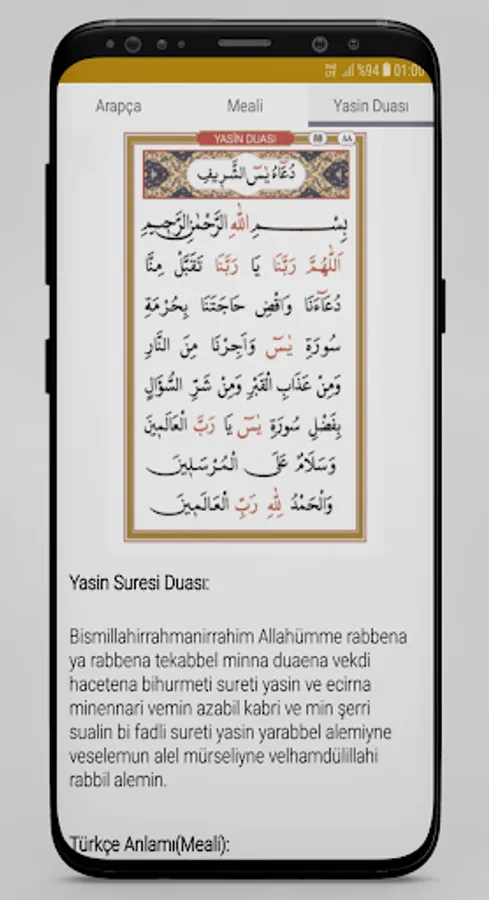 %94 01:00
Arapça Meali Yasin Duası
YASİN DUASI
دُعَاءُ يٰسٓ الشَّرِيفِ
بِسْمِ اللّٰهِ الرَّحْمٰنِ الرَّحِيمِ
اَللّٰهُمَّ رَبَّنَا يَا رَبَّنَا تَقَبَّلْ مِنَّا
دُعَاءَنَا وَاقْضِ حَاجَتَنَا بِحُرْمَةِ
سُورَةِ يٰسٓ وَاَجِرْنَا مِنَ النَّارِ
وَمِنْ عَذَابِ الْقَبْرِ وَمِنْ شَرِّ السُّؤَالِ
بِفَضْلِ سُورَةِ يٰسٓ يَا رَبَّ الْعَالَمِينَ
وَسَلَامٌ عَلَى الْمُرْسَلِينَ
وَالْحَمْدُ لِلّٰهِ رَبِّ الْعَالَمِينَ
Yasin Suresi Duası:
Bismillahirrahmanirrahim Allahümme rabbena
ya rabbena tekabbel minna duaena vekdi
hacetena bihurmeti sureti yasin ve ecirna
minennari vemin azabil kabri ve min şerri
sualin bi fadli sureti yasin yarabbel alemiyne
veselemun alel mürseliyne velhamdülillahi
rabbil alemin.
Türkçe Anlamı(Meali):